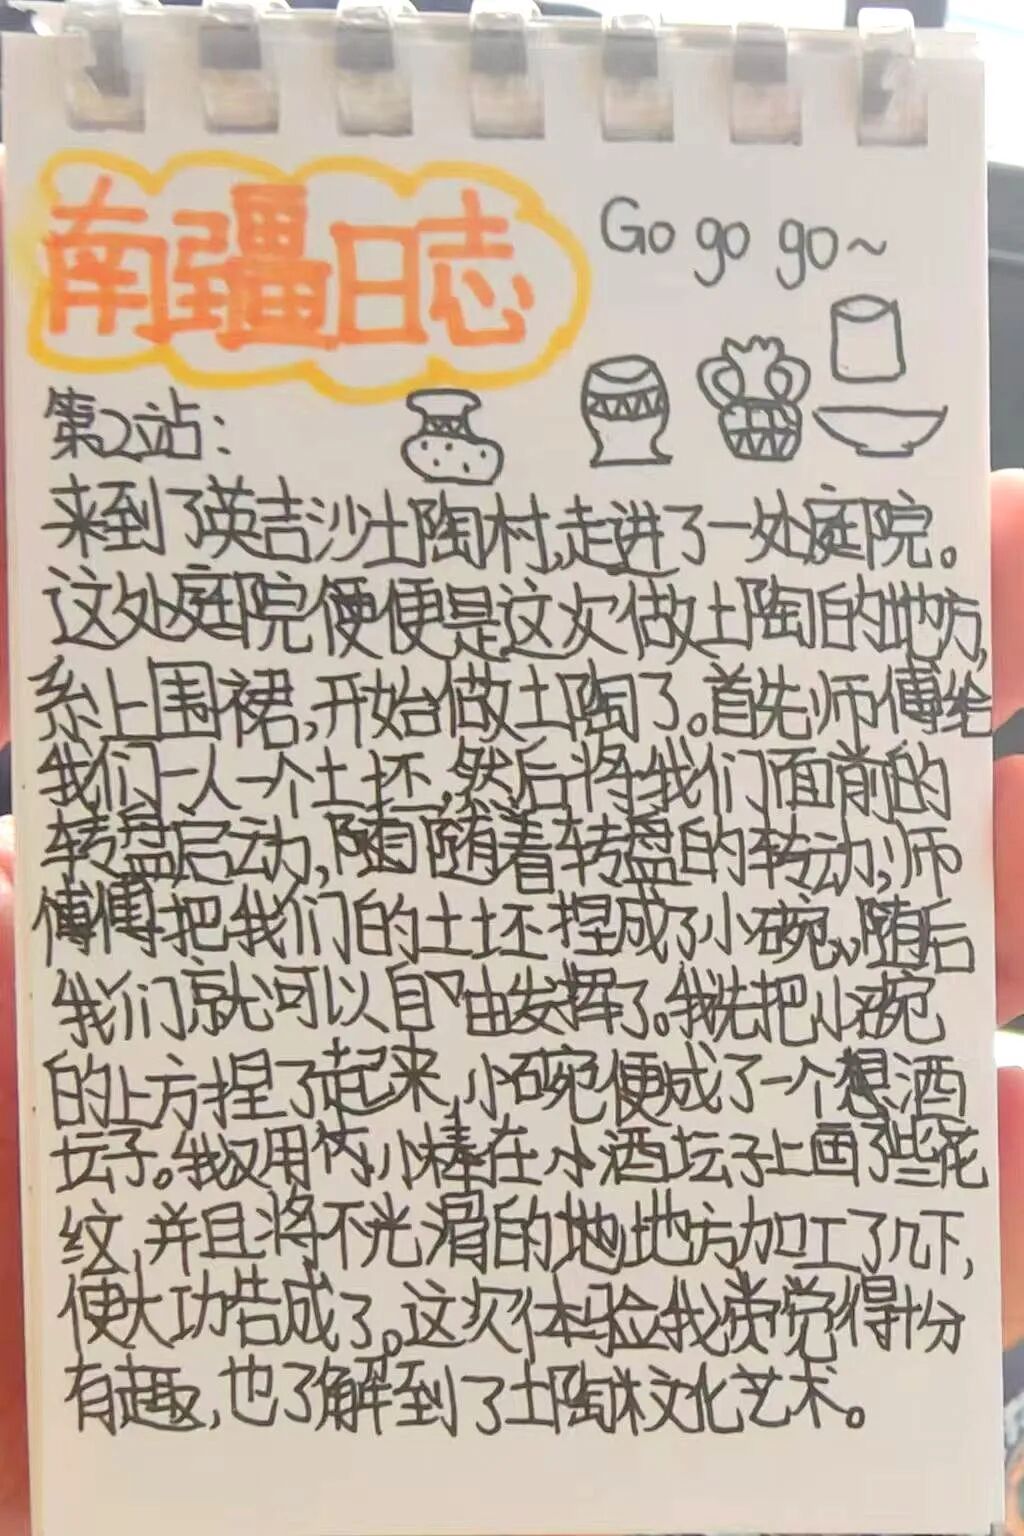 南疆日志
Go go go~
第2站：
来到了英吉沙土陶村,走进了一处庭院。
这处庭院便便是这次做土陶的地方,
系上围裙,开始做土陶了。首先师傅给
我们一人一个土坯,然后将我们面前的
转盘启动,随随着转盘的转动,师
傅傅把我们的土坯捏成了小碗、随后
我们就可以自由发挥了。我先把小碗
的上方捏了起来,小碗便成了一个想酒
坛子。我又用竹小棒在小酒坛子上画了些花
纹,并且将不光滑的地地方加工了几下,
便大功告成了。这次体验我觉觉得十分
有趣,也了解到了土陶村文化艺术。